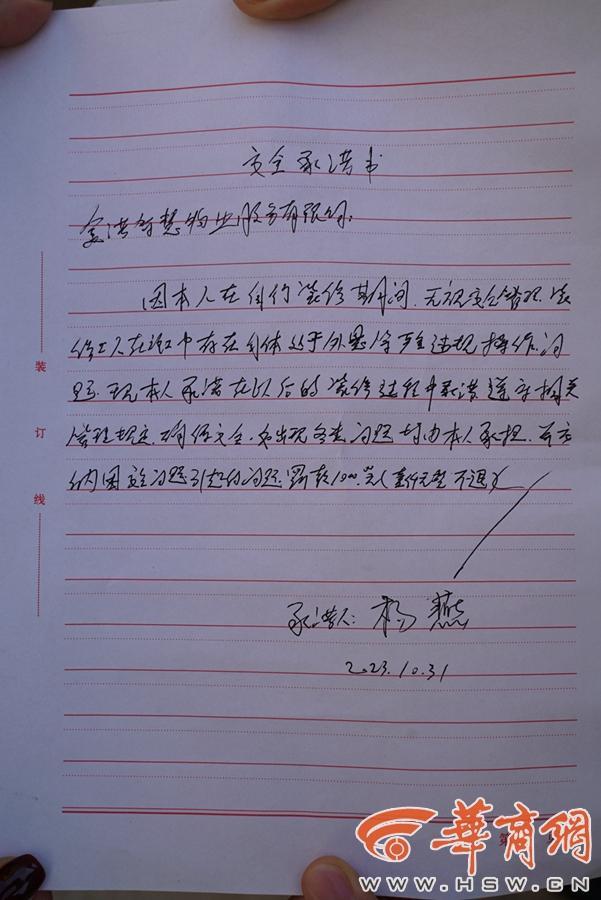 安全承诺书
金浩智慧物业服务有限公司:
因本人在自行装修期间,无视安全管理,装
修工人在施工中存在身体处于外悬等严重违规操作问
题.现本人承诺在以后的装修过程中承诺遵守相关
管理规定.确保安全.如出现各类问题均由本人承担.并交
纳因安全问题引起的问题罚款1000元(
不退)
承诺人: 杨燕
2023.10.31
装
订
线
第
華商網
WWW.HSW.CN